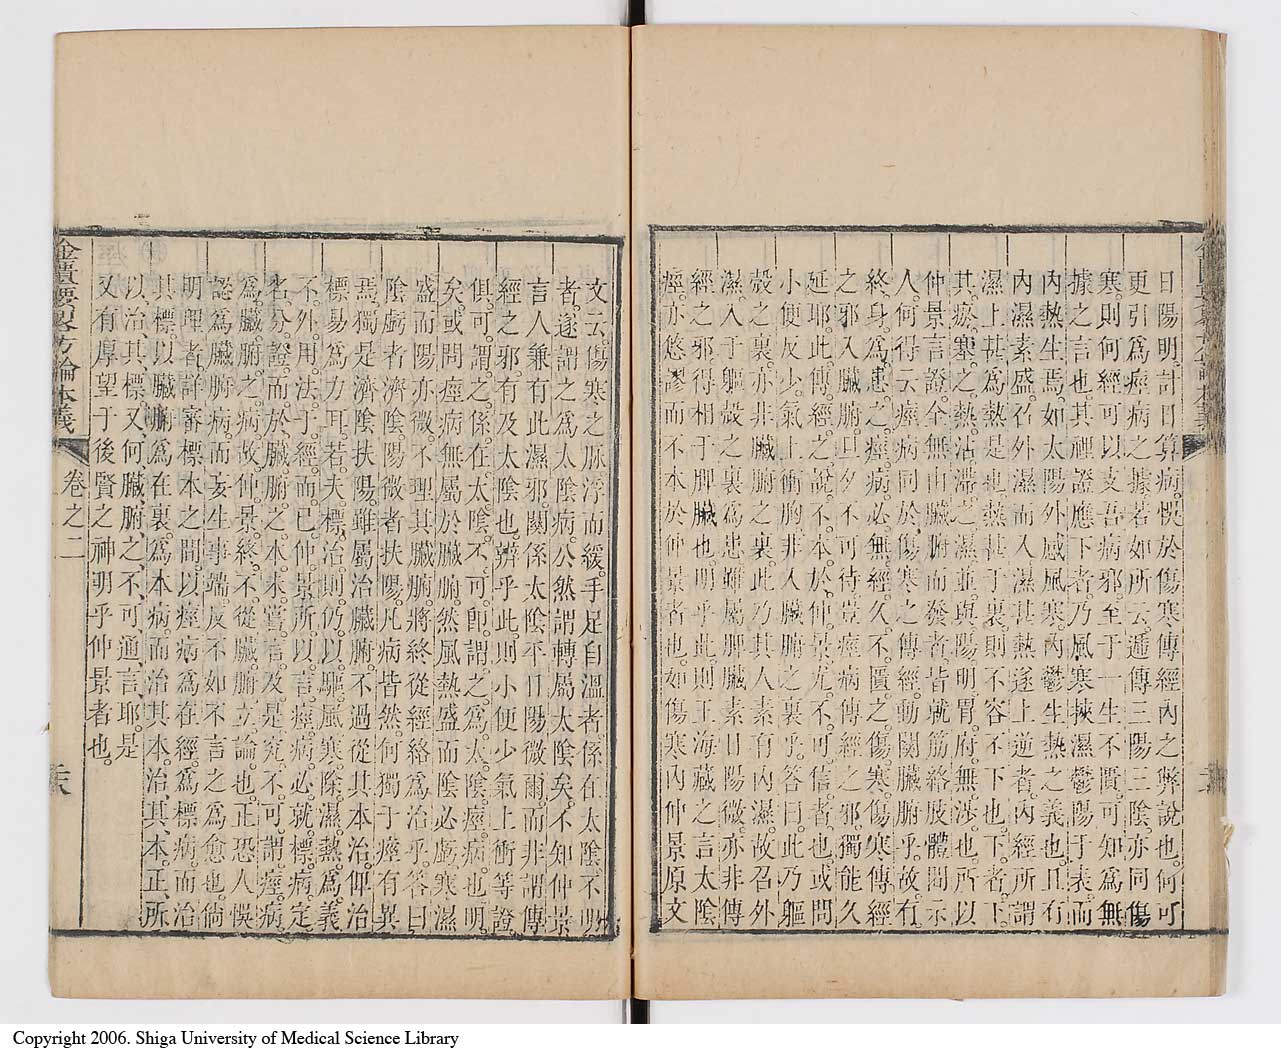 日陽明計日算病悞於傷寒傳經內之弊說也。何可
更引爲痙病之據。若如所云遞傳三陽三陰亦同傷
寒則何經可以支吾病邪至于一生不匱可知爲無
據之言也其裡證應下者乃風寒挾濕鬱陽于表而
內熱生焉。如太陽外感風寒內鬱生熱之義也。且有
內濕素盛召外濕而入濕甚熱遂上逆者內經所謂
濕上甚爲熱是也。熱甚于裏則不容不下也。下者上
其瘀寒之熱沾滯之濕並與陽明胃府無涉也。所以
仲景言證全無由臟腑而發者皆就筋絡肢體間示
人何得云痙病同於傷寒之傳經動關臟腑乎。故有
終身爲患之痙病必無經久不匱之傷寒傷寒傳經
之邪入臟腑旦夕不可待豈痙病傳經之邪獨能久
延耶。此傳經之說不本於仲景尤不可信者也或問
小便反少氣上衝胸非入臟腑之裏乎。答曰此乃軀
殼之裏亦非臟腑之裏此乃其人素有內濕故召外
濕入于軀殼之裏爲患雖屬脾臟素日陽微亦非傳
經之邪得相于脾臟也明乎此則王海藏之言太陰
痙亦悠謬而不本於仲景者也。如傷寒內仲景原文
文云傷寒之脉浮而緩手足自溫者係在太陰不明
者遂謂之爲太陰病公然謂轉屬太陰矣不知仲景
言人兼有此濕邪關係太陰平日陽微爾而非謂傳
經之邪有及太陰也辨乎此則小便少氣上衝等證
俱可謂之係在太陰不可卽謂之爲太陰痙病也明
矣。或問痙病無屬於臟腑然風熱盛而陰必虧寒濕
盛而陽亦微不理其臟腑將終從經絡爲治乎。答曰
陰虧者濟陰陽微者扶陽凡病皆然何獨于痙有異
焉獨是濟陰扶陽雖屬治臟腑不過從其本治仰治
標易爲力耳。若夫標治則仍以驅風寒除濕熱爲義
不外用法于經而已仲景所以言痙病必就標病定
名分證而於臟腑之本未嘗言及是究不可謂痙病
爲臟腑之病故仲景終不從臟腑立論也。正恐人悞
認爲臟腑病而妄生事端反不如不言之爲愈也。倘
明理者詳審標本之間以痙病爲在經爲標病而治
其標以臟腑爲在裏爲本病而治其本治其本正所
以治其標又何臟腑之不可通言耶。是
又有厚望于後賢之神明乎仲景者也。
金匱要略方論本義
卷之二
Copyright 2006. Shiga University of Medical Science Library